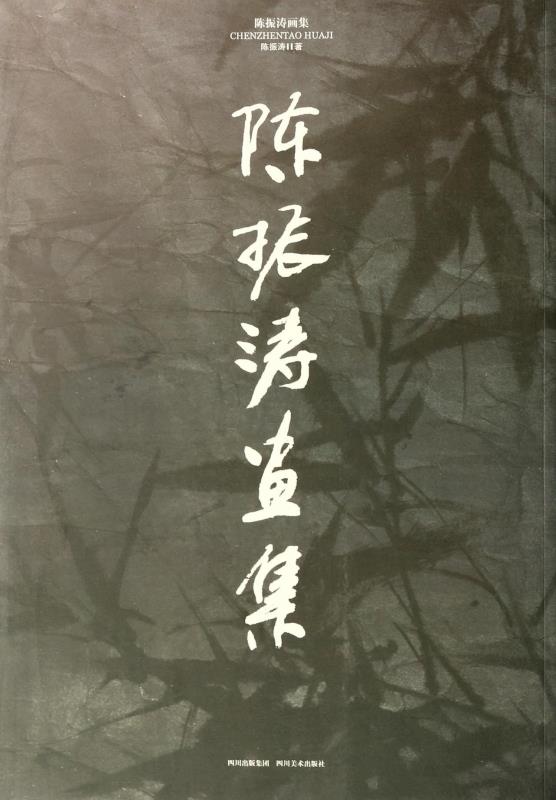 陈振涛画集
CHENZHENTAO HUAJI
陈振涛 著
陈振涛画集
四川出版集团 四川美术出版社